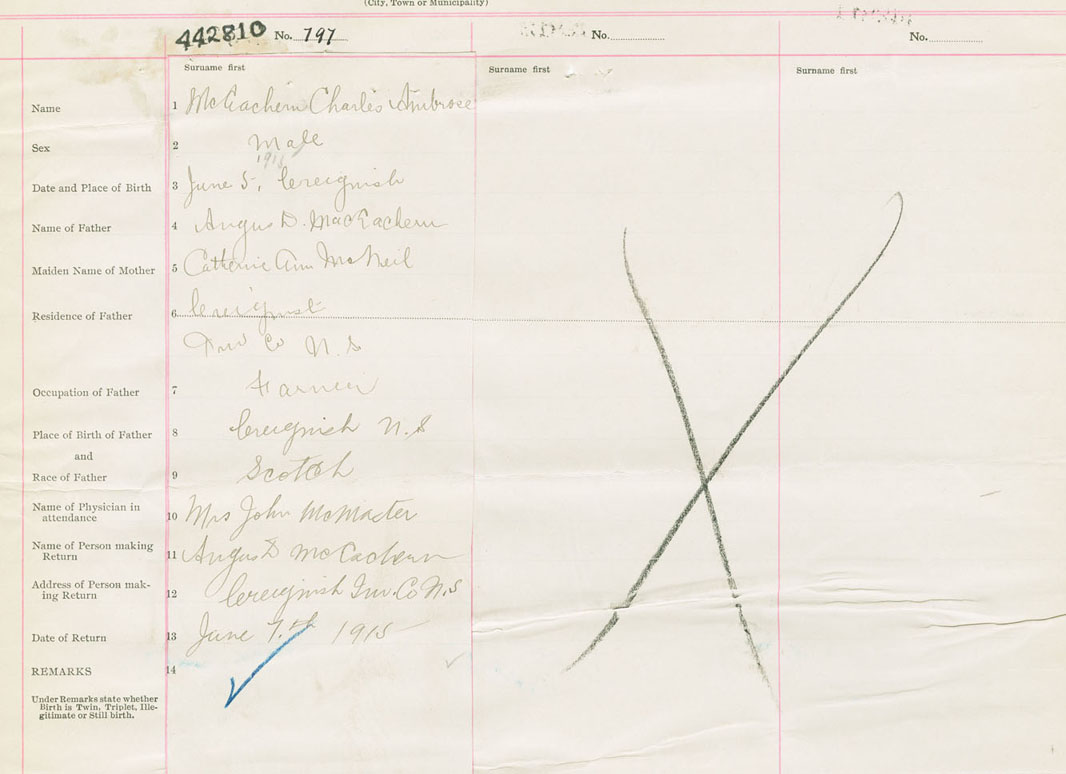 (City, Town or Municipality)
442810 No. 797 No. No.
Surname first Surname first Surname first
Name 1 McEachern Charles Ambrose
Sex 2 Male
Date and Place of Birth 3 June 5, Creignish
Name of Father 4 Angus D. MacEachern
Maiden Name of Mother 5 Catherine Ann McNeil
Residence of Father 6 Creignish
Inv Co N.S
Occupation of Father 7 Farmer
Place of Birth of Father 8 Creignish N.S
and
Race of Father 9 Scotch
Name of Physician in
attendance 10 Mrs John McMaster
Name of Person making
Return 11 Angus D McEachern
Address of Person mak-
ing Return 12 Creignish Inv. Co N.S
Date of Return 13 June 7th 1915
REMARKS 14
Under Remarks state whether
Birth is Twin, Triplet, Ille-
gitimate or Still birth.